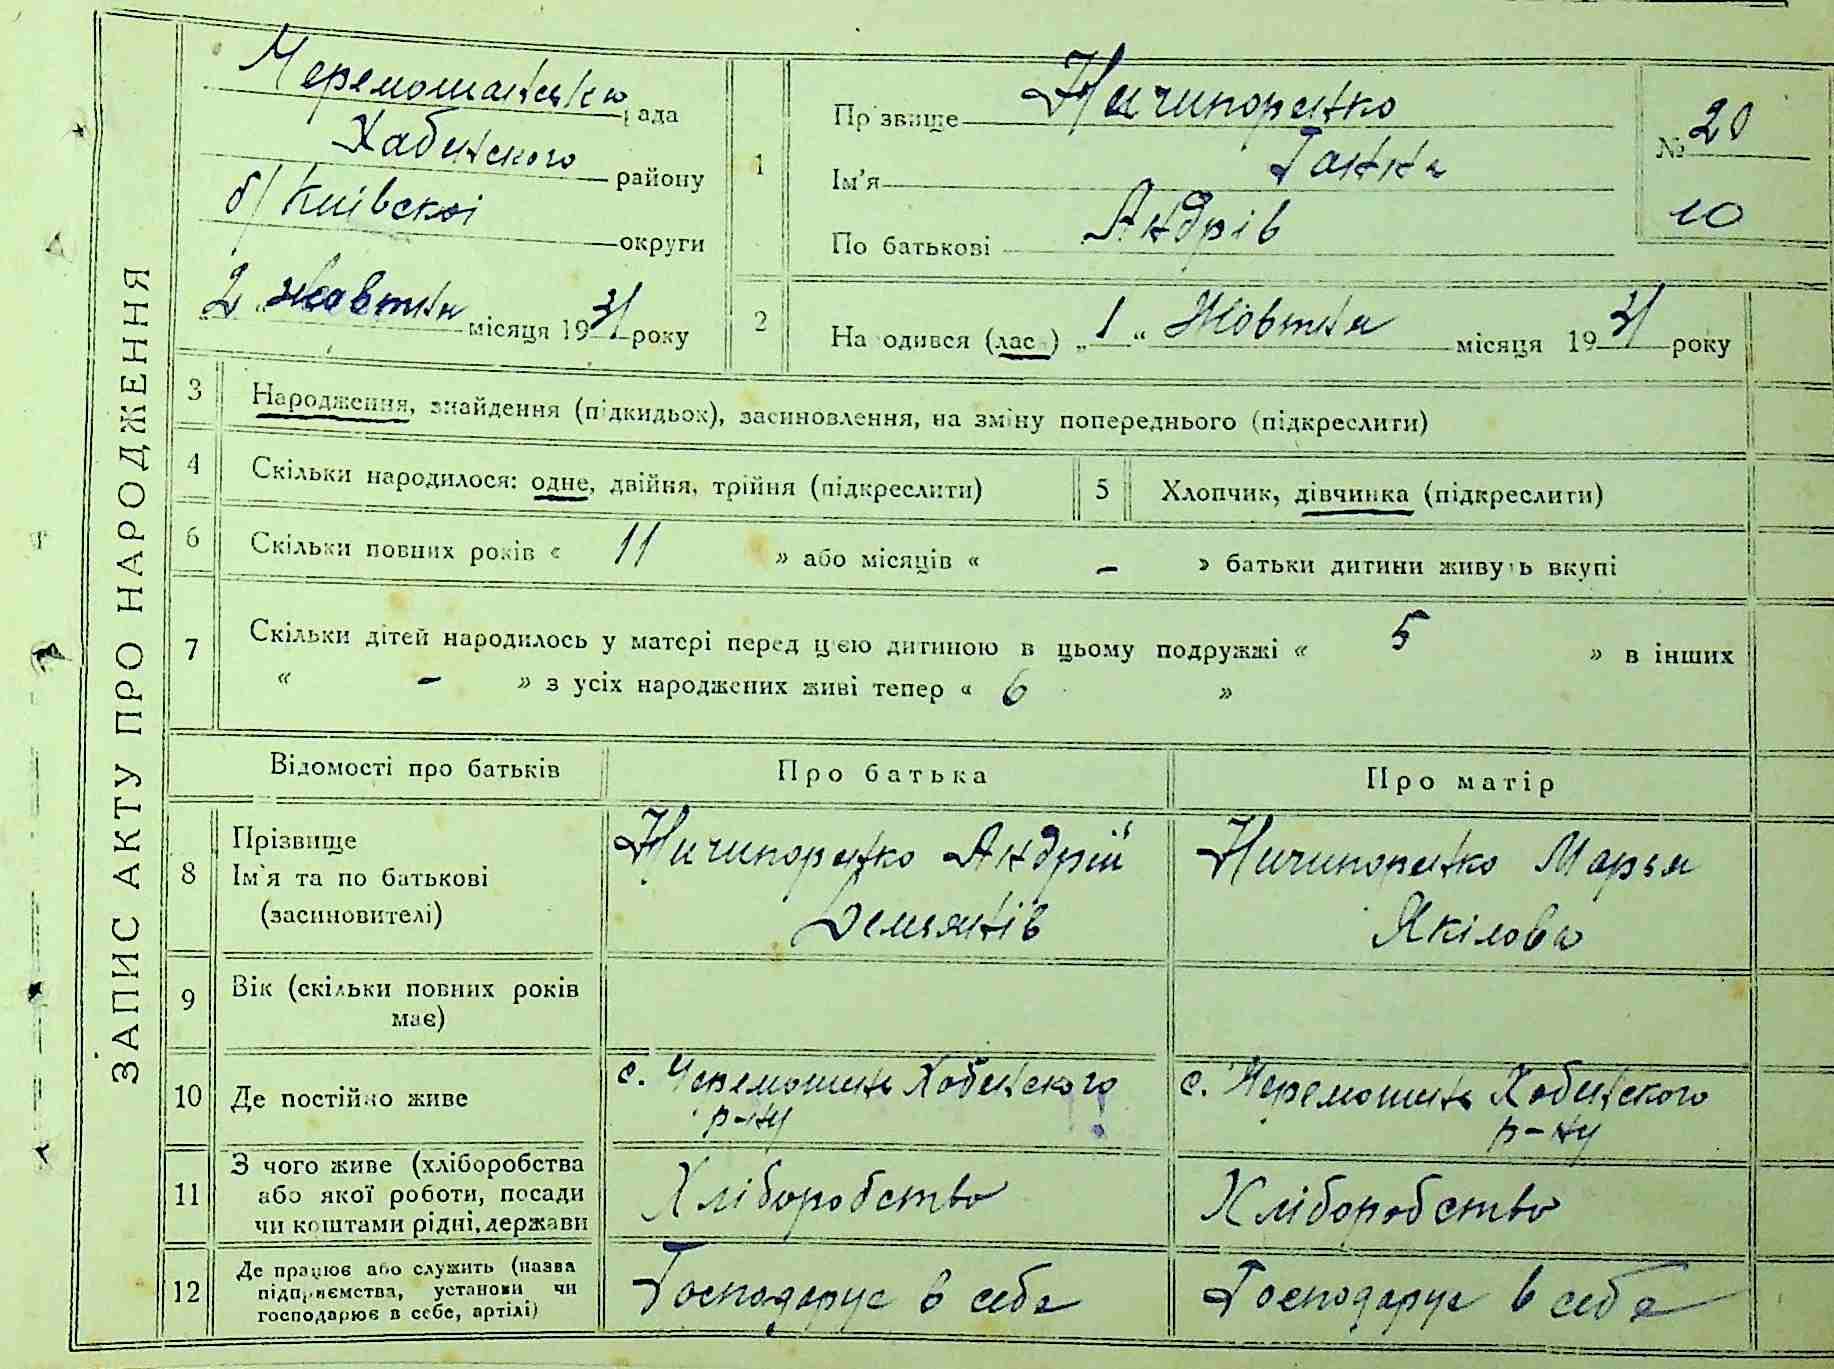 ЗАПИС АКТУ ПРО НАРОДЖЕННЯ
Черемошанська рада
Хабенського району
б/Київскоі округи
„2“ жовтня місяця 1931 року
1
Прізвище Ничипоренко
Ім'я Ганна
По батькові Андрів
№ 20
10
2
Народився (лась) „1“ Жовтня місяця 1931 року
3 Народження, знайдення (підкидьок), засиновлення, на зміну попереднього (підкреслити)
4 Скільки народилося: одне, двійня, трійня (підкреслити)
5 Хлопчик, дівчинка (підкреслити)
6 Скільки повних років « 11 » або місяців « – » батьки дитини живуть вкупі
7 Скільки дітей народилось у матері перед цією дитиною в цьому подружжі « 5 » в інших
« – » з усіх народжених живі тепер « 6 »
Відомості про батьків Про батька Про матір
8 Прізвище
Ім'я та по батькові
(засиновителі)
Ничипоренко Андрій
Демянів
Ничипоренко Марья
Якілова
9 Вік (скільки повних років
має)
10 Де постійно живе
с. Черемошнь Хабенского
р-ну
с. Черемошнь Хабенского
р-ну
11 З чого живе (хліборобства
або якої роботи, посади
чи коштами рідні, держави
Хліборобство
Хліборобство
12 Де працює або служить (назва
підприємства, установи чи
господарює в себе, артілі)
Господарує в себе
Господарує в себе